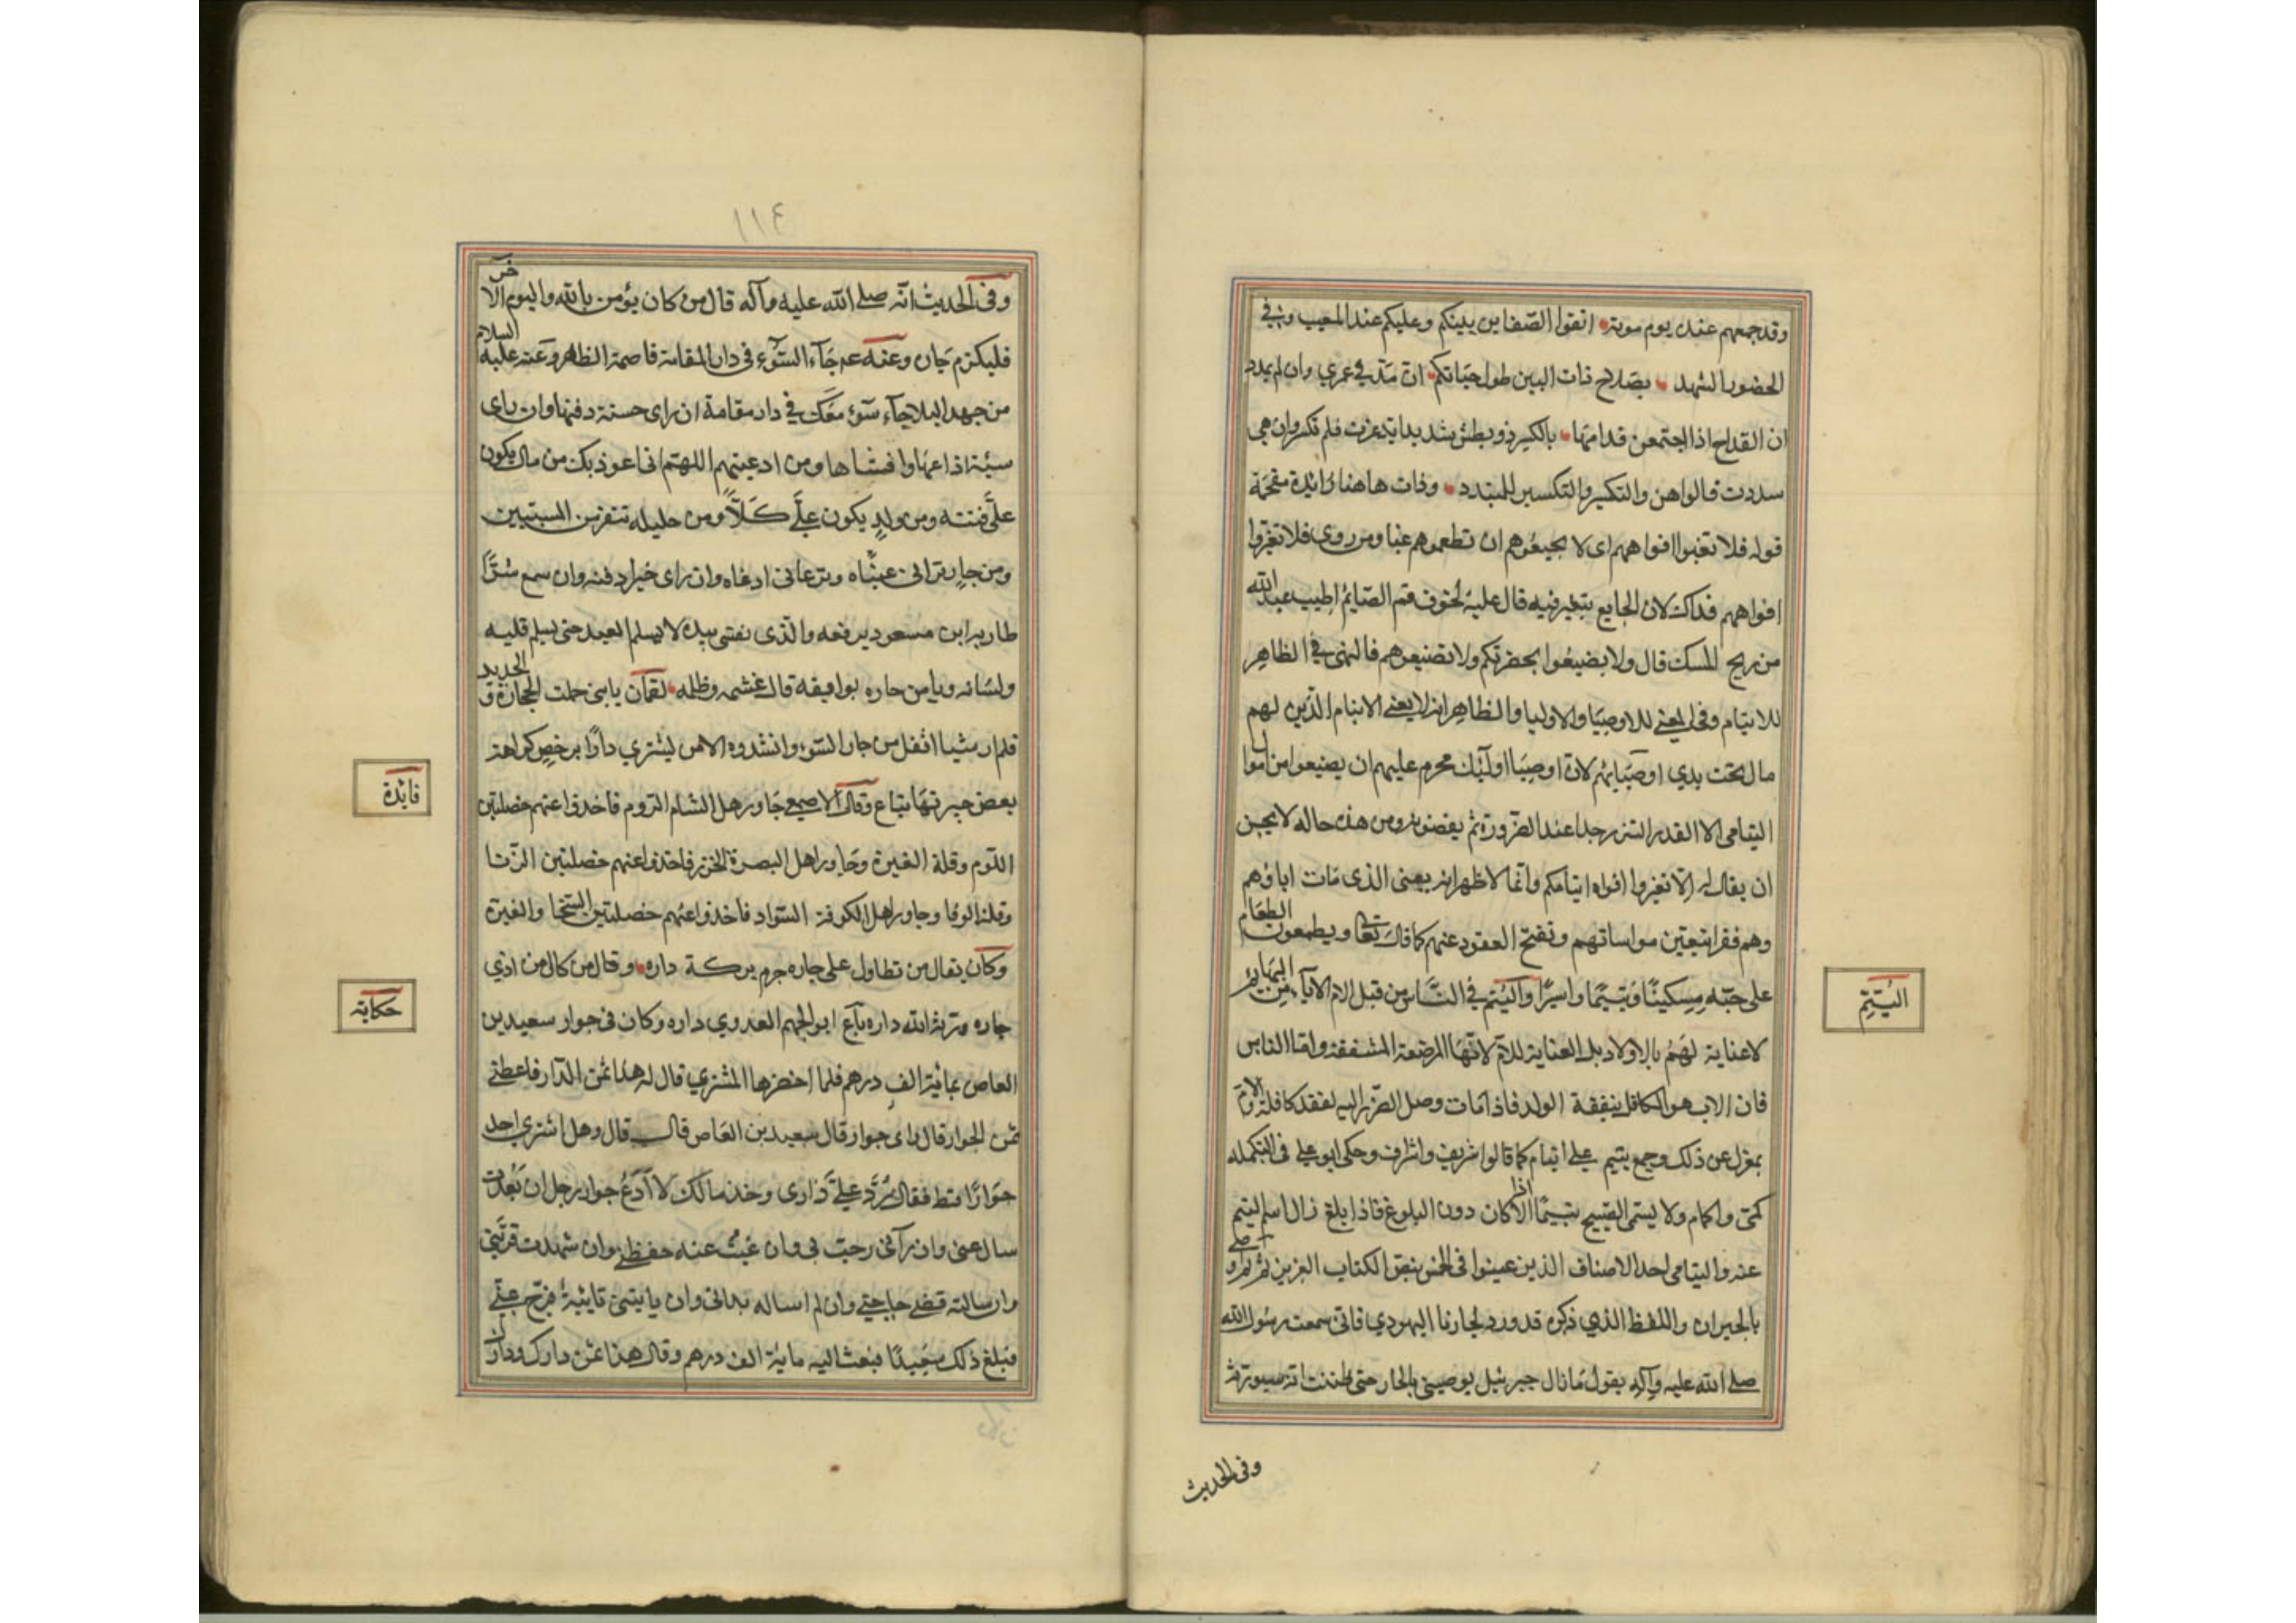 وقد جمعهم عند يوم موته انفوا الضغاين بينكم وعليكم عند المغيب وفي
الحضور الشهد بصلاح ذات البين طول حياتكم ان مد في عمري وان لم يمدد
ان القداح اذا اجتمعن فدامها بالكسر ذو بطش شديد ايد عزت فلم تكسر وان هي
بددت فالوهن والتكسير للمتبدد وذات هاهنا زائدة مقحمة
قوله فلا تغبوا افواههم اى لا تجيعوهم ان تطعموهم غبا ومن روى فلا تغيروا
افواههم فذاك لان الجايع يتغير فيه قال عليه لخلوف فم الصايم اطيب عند الله
من ريح المسك قال ولا يضيعوا بحضرتكم ولا تضيعوهم فالنهى في الظاهر
للايتام وفي المعنى للاوصيا والاوليا والظاهر انه لا يعنى الايتام الذين لهم
مال تحت يدي اوصيايهم لان اوصيا اولئك محرم عليهم ان يضيعوا من اموال
اليتامى الا القدر النزر جدا عند الضرورة ثم يقضونه ومن هذه حاله لا يحسن
ان يقال له لا تغيروا افواه ايتامكم وانما الاظهر انه يعنى الذى مات اباؤهم
وهم فقرا يتعين مواساتهم وتفتح العقود عنهم كما قال تعا ويطعمون الطعام
على حبه مسكينا ويتيما واسيرا واليتم في الناس من قبل الاب لا الام البهايم
لا عناية لهم بالاولاد بل العناية للام لانها المرضعة المشفقة واما الناس
فان الاب هو الكافل بنفقة الولد فاذا مات وصل الضرر اليه لفقد كافله والام
بمعزل عن ذلك وجمع يتيم على ايتام كما قالوا شريف واشراف وحكى ابو علي في التكمله
كمى واكام ولا يسمى الصبي يتيما الا اذا كان دون البلوغ فاذا بلغ زال اسم اليتم
عنه واليتامى احد الاصناف الذين عينوا في الخمس بنص الكتاب العزيز
بالجيران واللفظ الذى ذكره قد ورد لجارنا اليهودي فانى سمعت رسول الله
صلى الله عليه وآله يقول ما زال جبرئيل يوصينى بالجار حتى ظننت انه سيورثه
وفى الحديث
اليتم
١١٤
وفى الحديث انه صلى الله عليه وآله قال من كان يؤمن بالله واليوم الاخر
فليكرم جاره وعنه عم جآء السوء فى دار المقامة قاصمة الظهر وعنه عليه السلام
من جهد البلا جآء سوء معك في دار مقامة ان راى حسنة دفنها وان راى
سيئة اذاعها وافشاها ومن ادعيتهم اللهم انى اعوذ بك من مال يكون
علي فتنة ومن ولد يكون علي كلا ومن حليلة تقرب المشيب
ومن جار ترانى عيناه وترعانى اذناه وان راى خيرا دفنه وان سمع شرا
طار به ابن مسعود يرفعه والذى نفسى بيده لا يسلم العبد حتى يسلم قلبه
ولسانه ويامن جاره بوايقه قال غشمه وظلمه لقمان يا بنى حملت الحجارة والحديد
فلم ار شيا اثقل من جار السوء وانشدوا الا من يشتري دارا برخص كراهة
بعض جيرتها تباع وقال الاصمعي جاور اهل الشام الروم فاخذوا عنهم خصلتين
اللوم وقلة الغيرة وجاور اهل البصرة الخزر فاخذوا عنهم خصلتين الزنا
وقلة الوفا وجاور اهل الكوفة السواد فاخذوا عنهم خصلتين السخا والغيرة
وكان يقال من تطاول على جاره حرم بركة داره وقال من كال من اذى
جاره ورثه الله داره باع ابو الجهم العدوي داره وكان فى جوار سعيد بن
العاص بمائة الف درهم فلما احضرها المشترى قال له هذا ثمن الدار فاعطنى
ثمن الجوار قال واى جوار قال سعيد بن العاص قال وهل اشترى احد
جوارا قط فقال رد علي دارى وخذ مالك لا ادع جوار رجل ان قعدت
سال عنى وان رآنى رحب بى وان غبت عنه حفظنى وان شهدت قربنى
وان سالته قضى حاجتى وان لم اساله بدانى وان نابتنى نايبة فرج عنى
فبلغ ذلك سعيدا فبعث اليه مائة الف درهم وقال هذا ثمن دارك ودارك
فايدة
حكاية